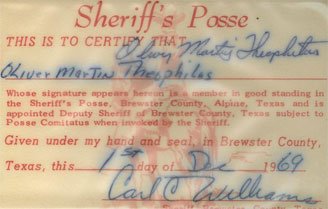 Sheriff's Posse
THIS IS TO CERTIFY THAT Oliver Martin Theophilus
Oliver Martin Theophilus
Whose signature appears hereon is a member in good standing
in the Sheriff's Posse, Brewster County, Alpine, Texas and is
appointed Deputy Sheriff of Brewster County, Texas subject to
Posse Comitatus when invoked by the Sheriff.
Given under my hand and seal, in Brewster County,
Texas, this 1st day of De 1969
Carl C Williams
Sheriff, Brewster County, Texas